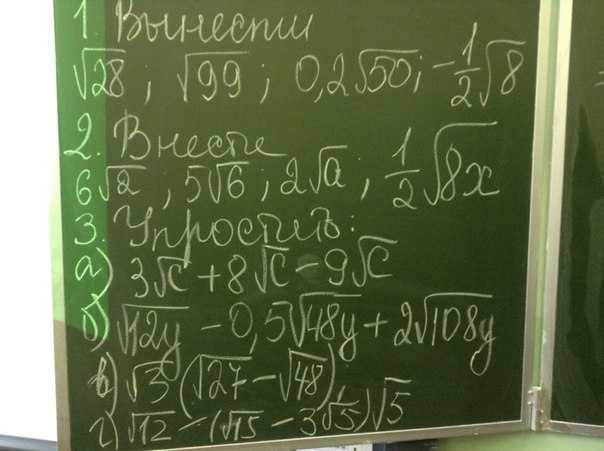 1. Вынести
√28; √99; 0,2√50; -1/2√8
2. Внести
6√2, 5√6; 2√a; 1/2√8x
3. Упростить:
а) 3√c + 8√c - 9√c
б) √12y - 0,5√48y + 2√108y
в) √3(√27 - √48)
г) √12 - (√15 - 3√5)√5